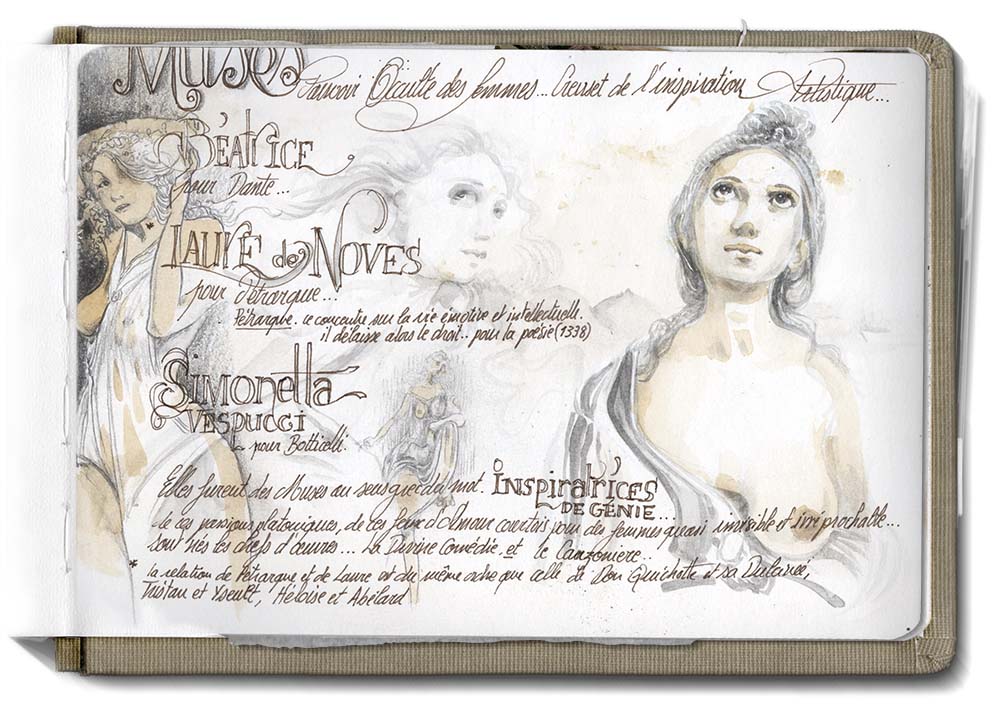 Muses
Pouvoir Occulte des femmes... Creuset de l'inspiration Artistique...
Béatrice
pour Dante...
Laure de Noves
pour Pétrarque...
Pétrarque. se concentre sur la vie émotive et intellectuelle.
il délaisse alors le droit.. pour la poésie (1338)
Simonetta
Vespucci
pour Botticelli.
Elles furent des Muses au sens grec du mot. Inspiratrices
de Génie...
de ces passions platoniques, de ces feux d'Amour courtois pour des femmes quasi invisible et irréprochable...
sont nés les chefs d'œuvres.... La Divine Comédie, et le Canzoniere..
* la relation de Pétrarque et de Laure est du même ordre que celle de Don Quichotte et sa Dulcinée,
Tristan et Yseult, Héloïse et Abélard